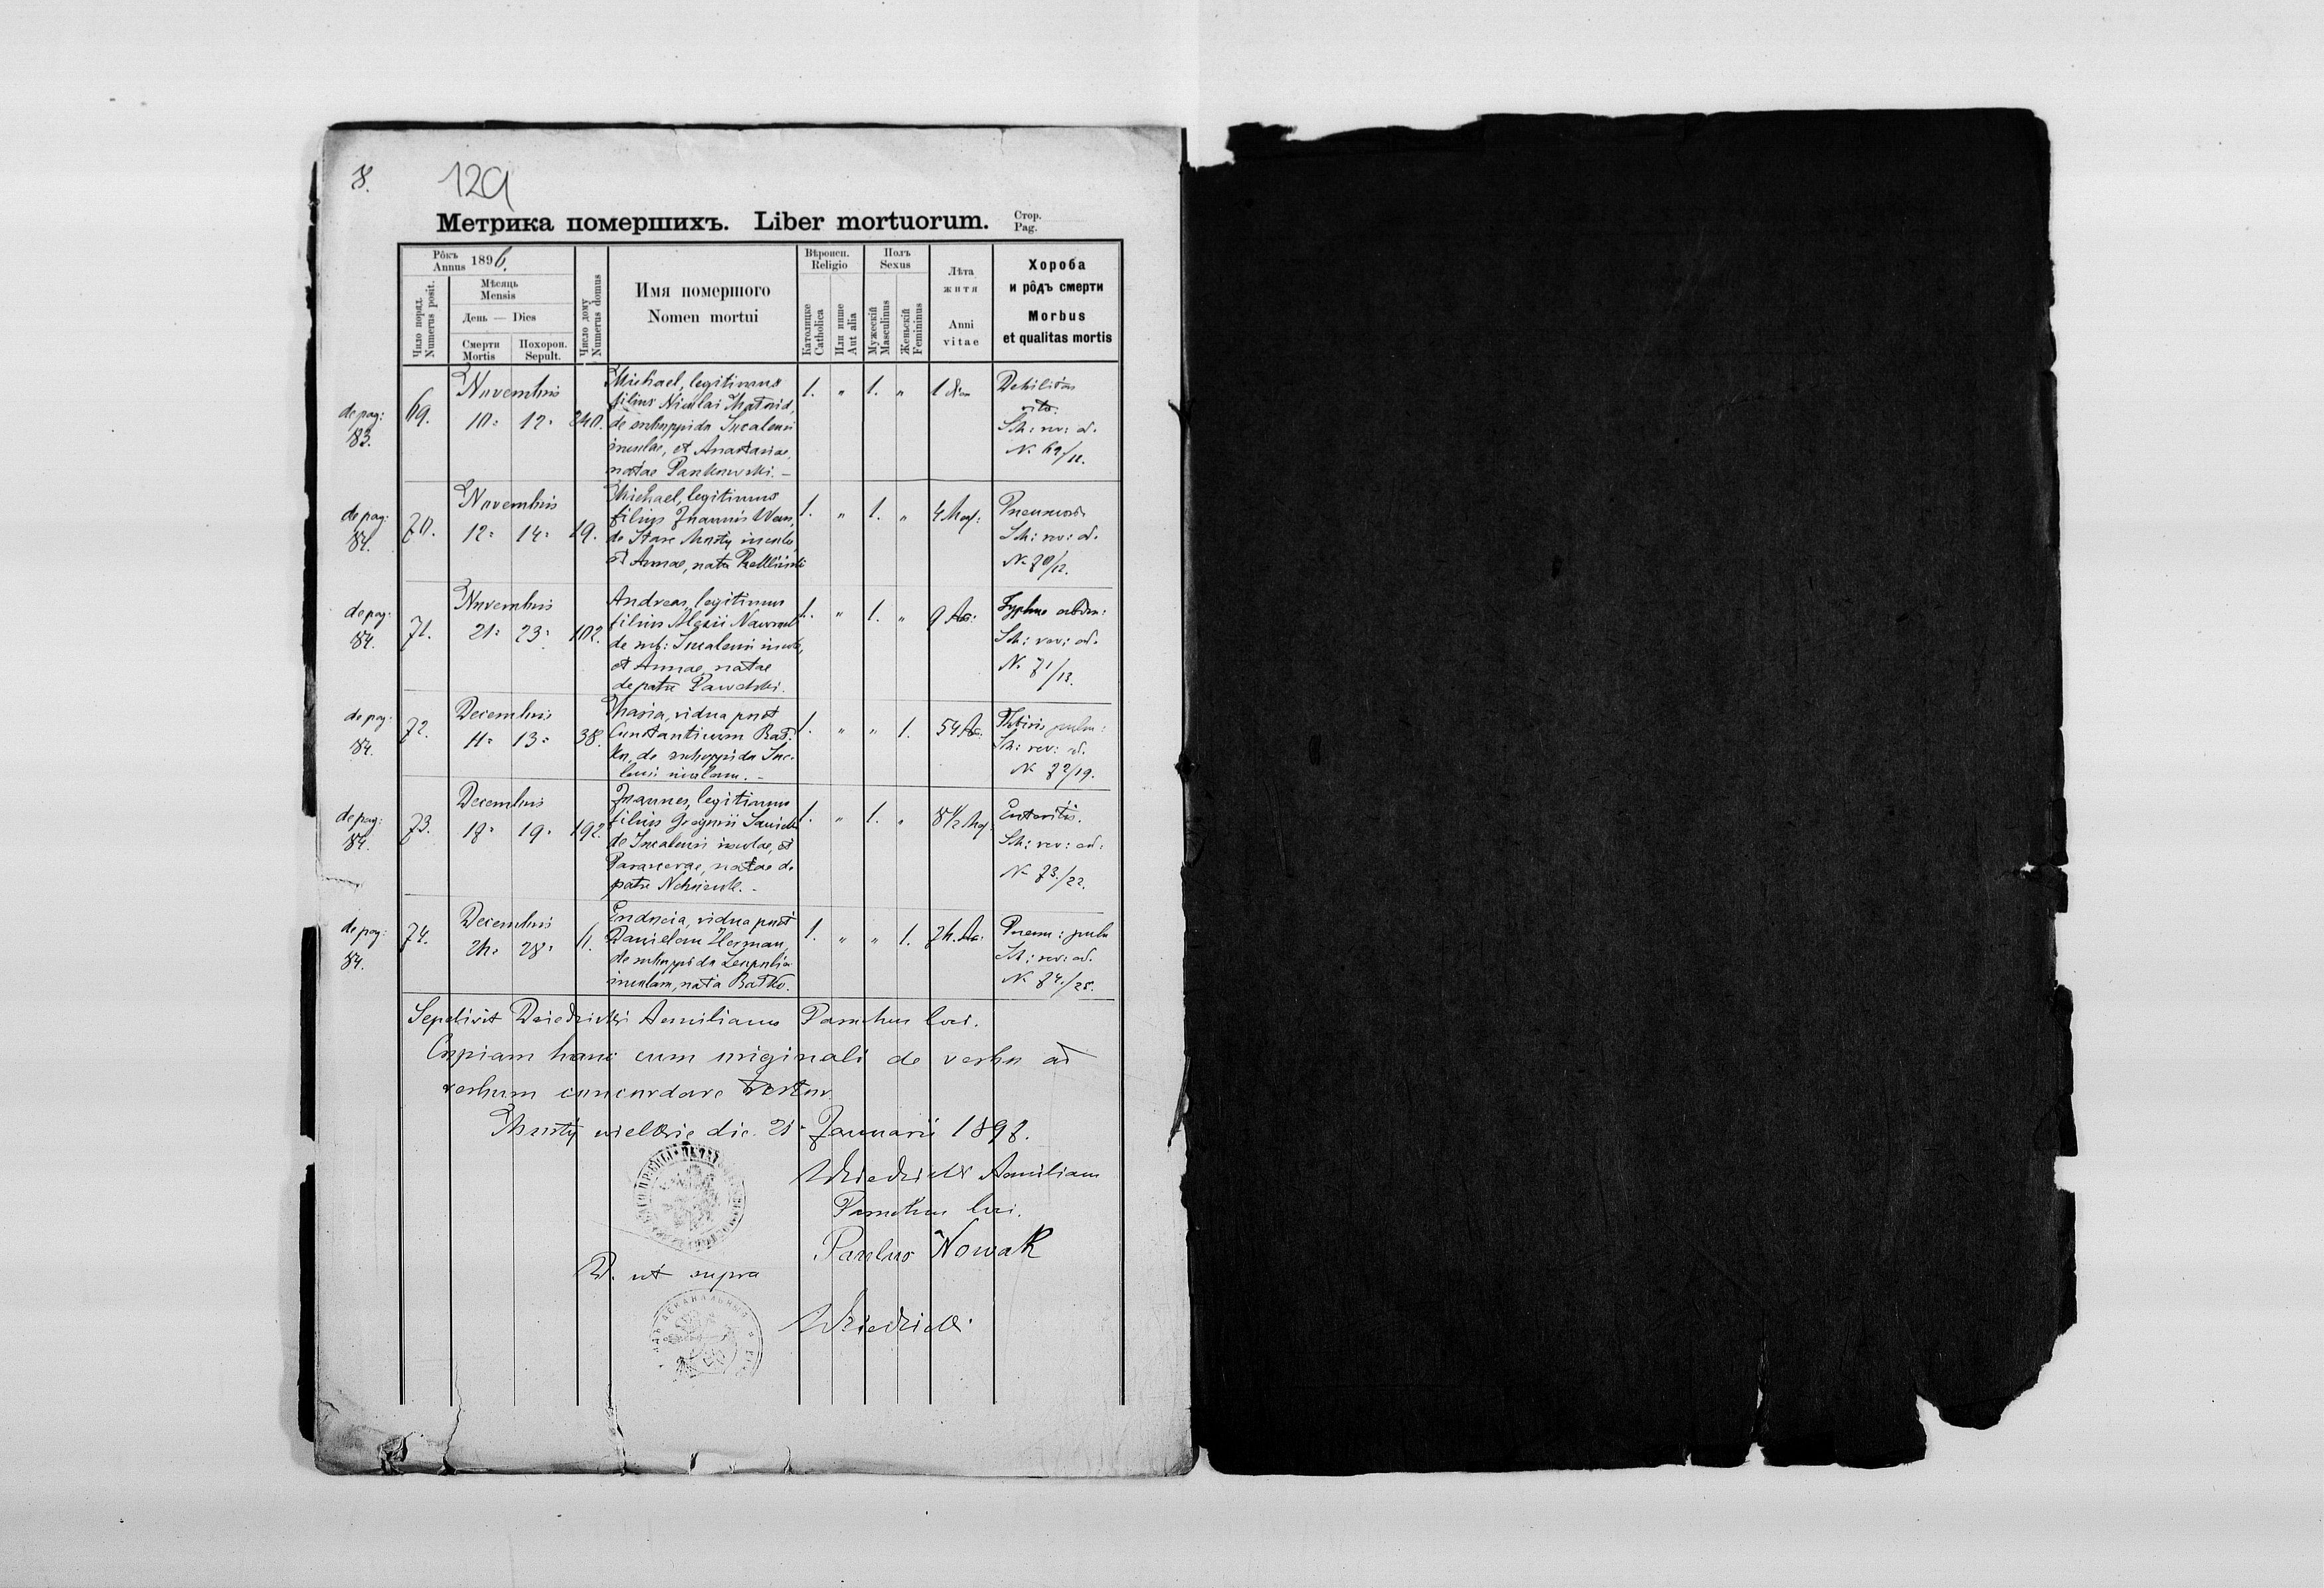 8.
129
Метрика помершихъ. Liber mortuorum.
Стор.
Pag.
Рôкъ
Annus 1896.
Мѣсяць
Mensis
День — Dies
Смерти
Mortis
Похорон.
Sepult.
Число поряд.
Numerus posit.
Число дому
Numerus domus
Имя помершого
Nomen mortui
Вѣроисп.
Religio
Католицке
Catholica
Или инше
Aut alia
Полъ
Sexus
Мужескій
Masculinus
Женьскій
Femininus
Лѣта
житя
Anni
vitae
Хороба
и рôдъ смерти
Morbus
et qualitas mortis
de pag:
83.
69.
Novembris
10. 12. 240.
Michael, legitimus
filius Nicolai
de suboppido
incolae, et Anastasiae,
natae Pankowski. –
1. " 1. "
Debilitas
vitae.
Sch: rev: ad.
N. 69/12.
de pag:
84.
70.
Novembris
12. 14. 19.
Michael, legitimus
filius Joannis
de Stare Mosty incolae,
et Annae, nata
1. " 1. " 4
Sch: rev: ad.
N. 70/12.
de pag:
84.
71.
Novembris
21. 23. 102.
Andreas, legitimus
filius Alexii
de sub:
et Annae, natae
de patre Pawelski.
1. " 1. " 9
Typhus abdom:
Sch: rev: ad.
N. 71/13.
de pag:
84.
72.
Decembris
11. 13. 38.
vidua post
Constantinum Bat-
ko, de suboppido
incolam. –
1. " " 1. 54
Phtisis pulm:
Sch: rev: ad.
N. 72/19.
de pag:
84.
73.
Decembris
17. 19. 192.
Joannes, legitimus
filius Gregorii
de incolae, et
Parascevae, natae de
patre
1. " 1. " 8 1/2
Enteritis.
Sch: rev: ad:
N. 73./22.
de pag:
84.
74.
Decembris
26. 28.
Eudocia, vidua post
Danielem Herman,
de suboppido
incolam, nata Batko.
1. " " 1. 76.
Pneum: pulm
Sch: rev: ad.
N. 74./25.
Sepelivit Dziedzicki Aemilianus Parochus loci.
Copiam hanc cum originali de verbo ad
verbum concordare testor.
Mosty wielkie die 21. Januarii 1897.
Dziedzicki Aemilian
Parochus loci.
Paulus Nowak
D. ut supra
Dziedzicki